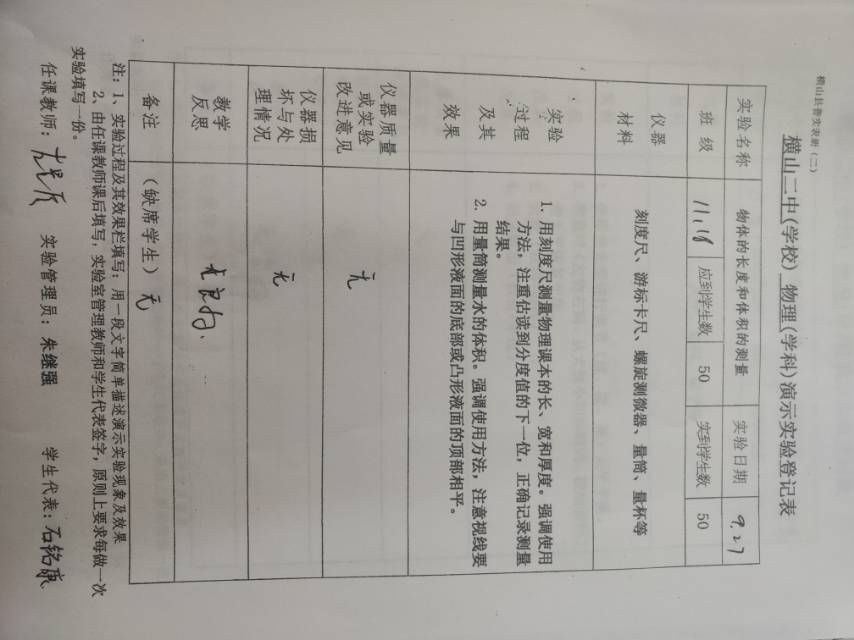 横山县普实表册(二)
横山二中(学校) 物理(学科)演示实验登记表
实验名称 物体的长度和体积的测量 实验日期 9.27
班级 11.18 应到学生数 50 实到学生数 50
仪器
材料
刻度尺、游标卡尺、螺旋测微器、量筒、量杯等
实验
过程
及其
效果
1. 用刻度尺测量物理课本的长、宽和厚度。强调使用
方法，注重估读到分度值的下一位，正确记录测量
结果。
2. 用量筒测量水的体积。强调使用方法，注意视线要
与凹形液面的底部或凸形液面的顶部相平。
仪器质量
或实验
改进意见
无
仪器损
坏与处
理情况
无
教学
反思
备注 (缺席学生) 无
注：1、实验过程及其效果栏填写：用一段文字简单描述演示实验现象及效果
2、由任课教师课后填写，实验室管理教师和学生代表签字，原则上要求每做一次
实验填写一份。
任课教师： 实验管理员：朱继强 学生代表：石铭康